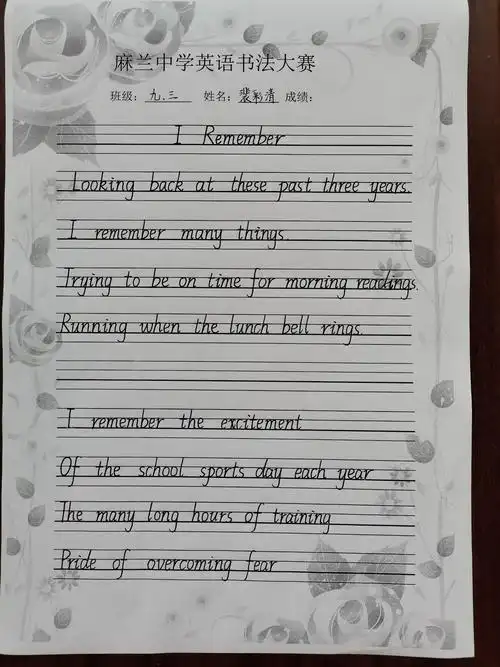 麻兰中学英语书法大赛
班级: 九.三 姓名: 裴彩清 成绩:
I Remember
Looking back at these past three years.
I remember many things.
Trying to be on time for morning readings.
Running when the lunch bell rings.
I remember the excitement
Of the school sports day each year
The many long hours of training
Pride of overcoming fear